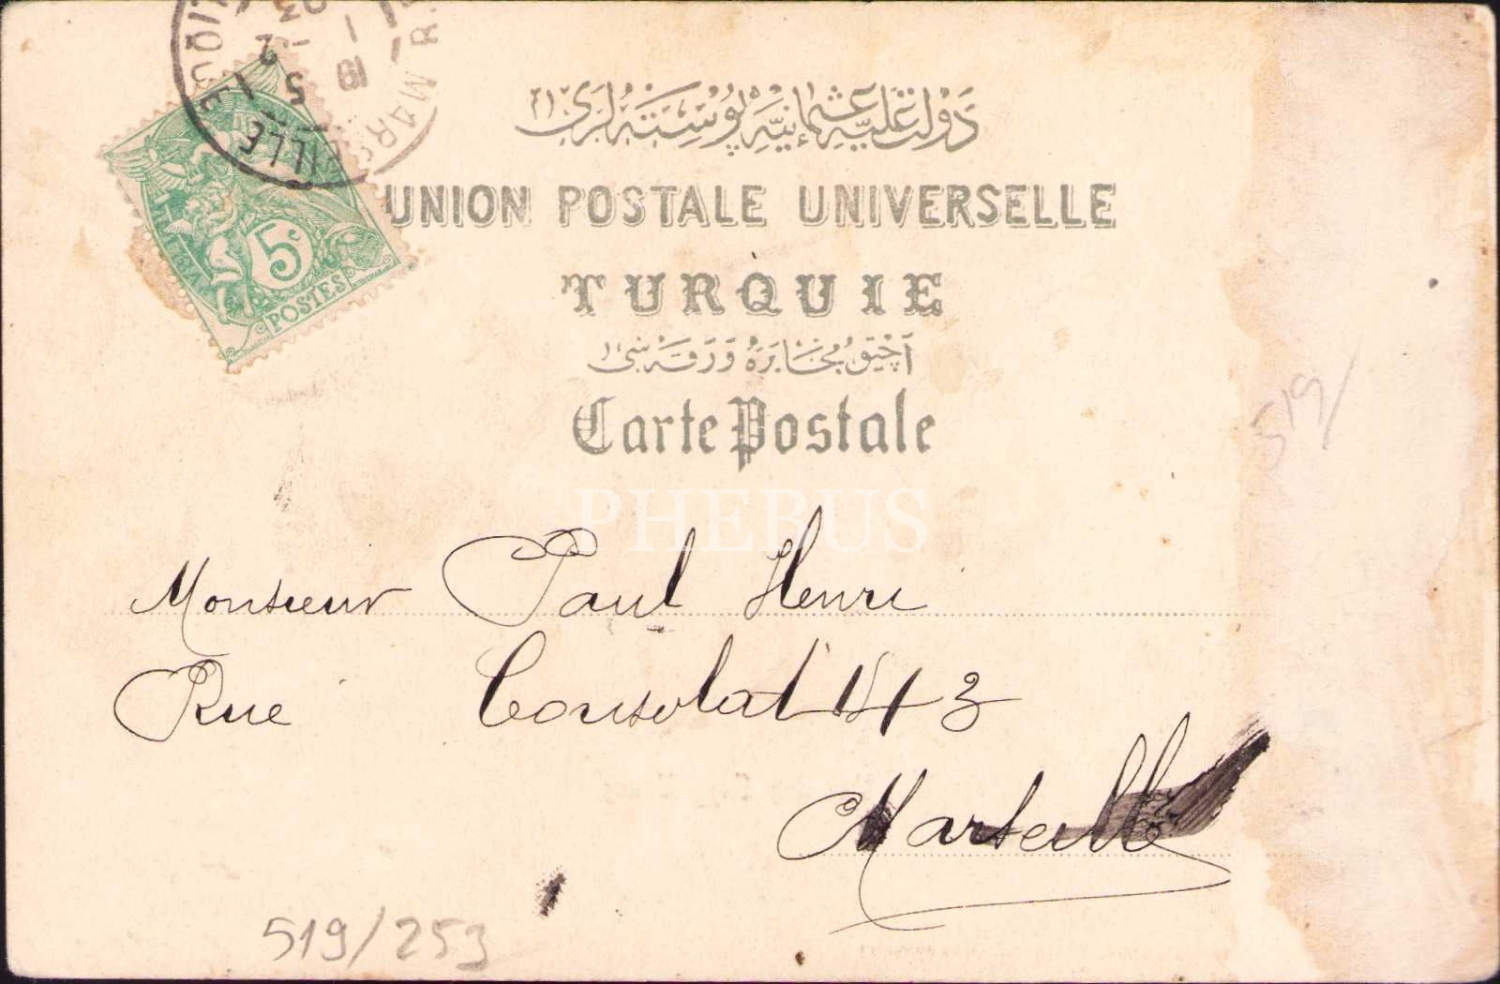 دولت علیهٔ عثمانیه پوسته لری
UNION POSTALE UNIVERSELLE
TURQUIE
آچیق مخابره ورقه سی
Carte Postale
5c
POSTES
MARSEILLE
PHEBUS
Monsieur Paul Henri
Rue Consolat 143
Marseille
519/
519/253